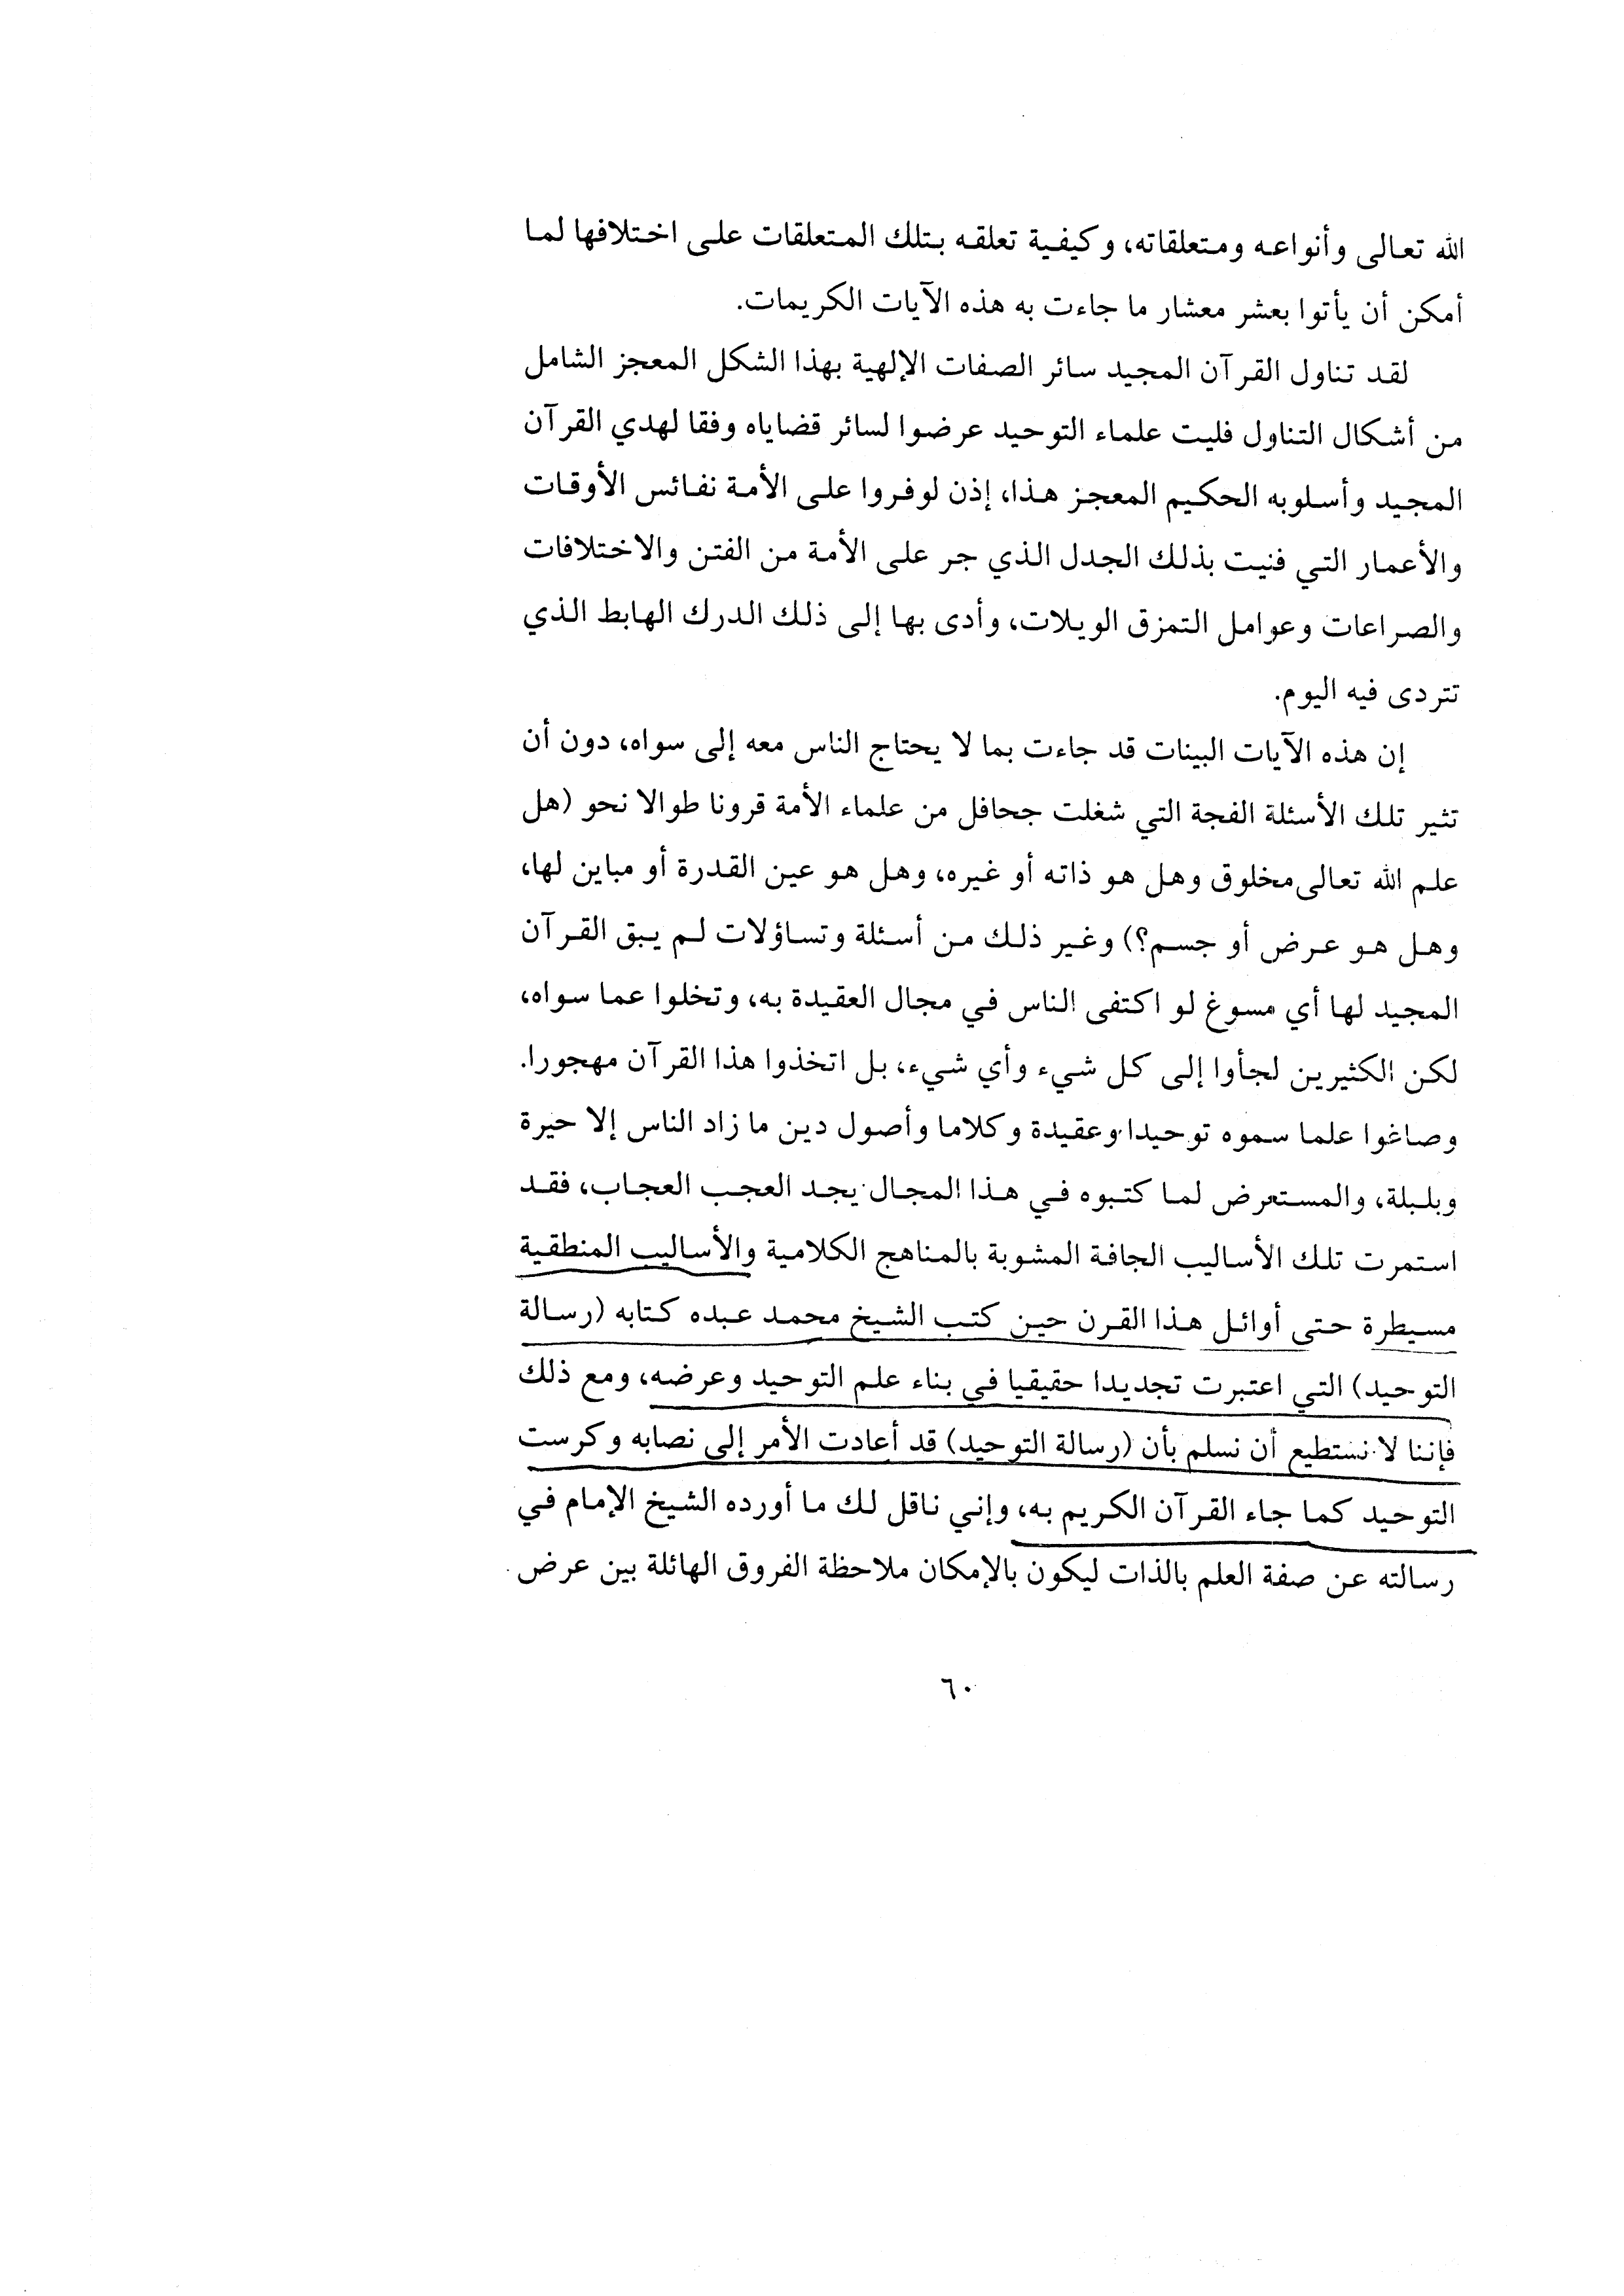 الله تعالى وأنواعه ومتعلقاته، وكيفية تعلقه بتلك المتعلقات على اختلافها لما
أمكن أن يأتوا بعشر معشار ما جاءت به هذه الآيات الكريمات.
لقد تناول القرآن المجيد سائر الصفات الإلهية بهذا الشكل المعجز الشامل
من أشكال التناول فليت علماء التوحيد عرضوا لسائر قضاياه وفقا لهدي القرآن
المجيد وأسلوبه الحكيم المعجز هذا، إذن لوفروا على الأمة نفائس الأوقات
والأعمار التي فنيت بذلك الجدل الذي جر على الأمة من الفتن والاختلافات
والصراعات وعوامل التمزق الويلات، وأدى بها إلى ذلك الدرك الهابط الذي
تتردى فيه اليوم.
إن هذه الآيات البينات قد جاءت بما لا يحتاج الناس معه إلى سواه، دون أن
تثير تلك الأسئلة الفجة التي شغلت جحافل من علماء الأمة قرونا طوالا نحو (هل
علم الله تعالى مخلوق وهل هو ذاته أو غيره، وهل هو عين القدرة أو مباين لها،
وهل هو عرض أو جسم؟) وغير ذلك من أسئلة وتساؤلات لم يبق القرآن
المجيد لها أي مسوغ لو اكتفى الناس في مجال العقيدة به، وتخلوا عما سواه،
لكن الكثيرين لجأوا إلى كل شيء وأي شيء، بل اتخذوا هذا القرآن مهجورا.
وصاغوا علما سموه توحيدا وعقيدة وكلاما وأصول دين ما زاد الناس إلا حيرة
وبلبلة، والمستعرض لما كتبوه في هذا المجال يجد العجب العجاب، فقد
استمرت تلك الأساليب الجافة المشوبة بالمناهج الكلامية والأساليب المنطقية
مسيطرة حتى أوائل هذا القرن حين كتب الشيخ محمد عبده كتابه (رسالة
التوحيد) التي اعتبرت تجديدا حقيقيا في بناء علم التوحيد وعرضه، ومع ذلك
فإننا لا نستطيع أن نسلم بأن (رسالة التوحيد) قد أعادت الأمر إلى نصابه وكرست
التوحيد كما جاء القرآن الكريم به، وإني ناقل لك ما أورده الشيخ الإمام في
رسالته عن صفة العلم بالذات ليكون بالإمكان ملاحظة الفروق الهائلة بين عرض
٦٠